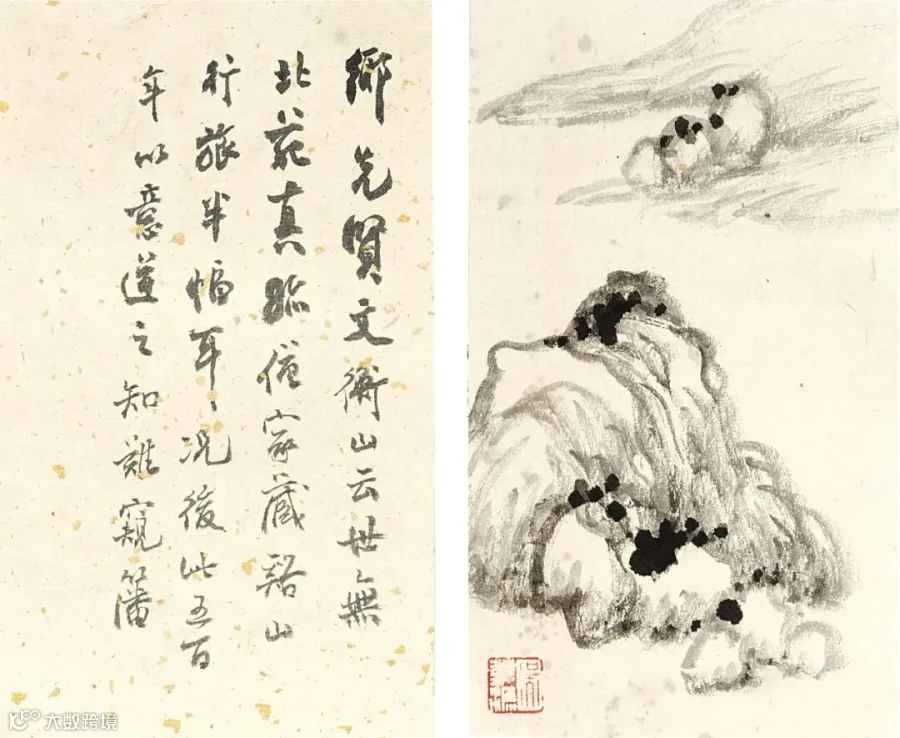 鄉先賢文衡山云世無
北苑真跡僅家藏谿山
行旅半幅耳況後此五百
年以意造之知難窺籓
大数跨境